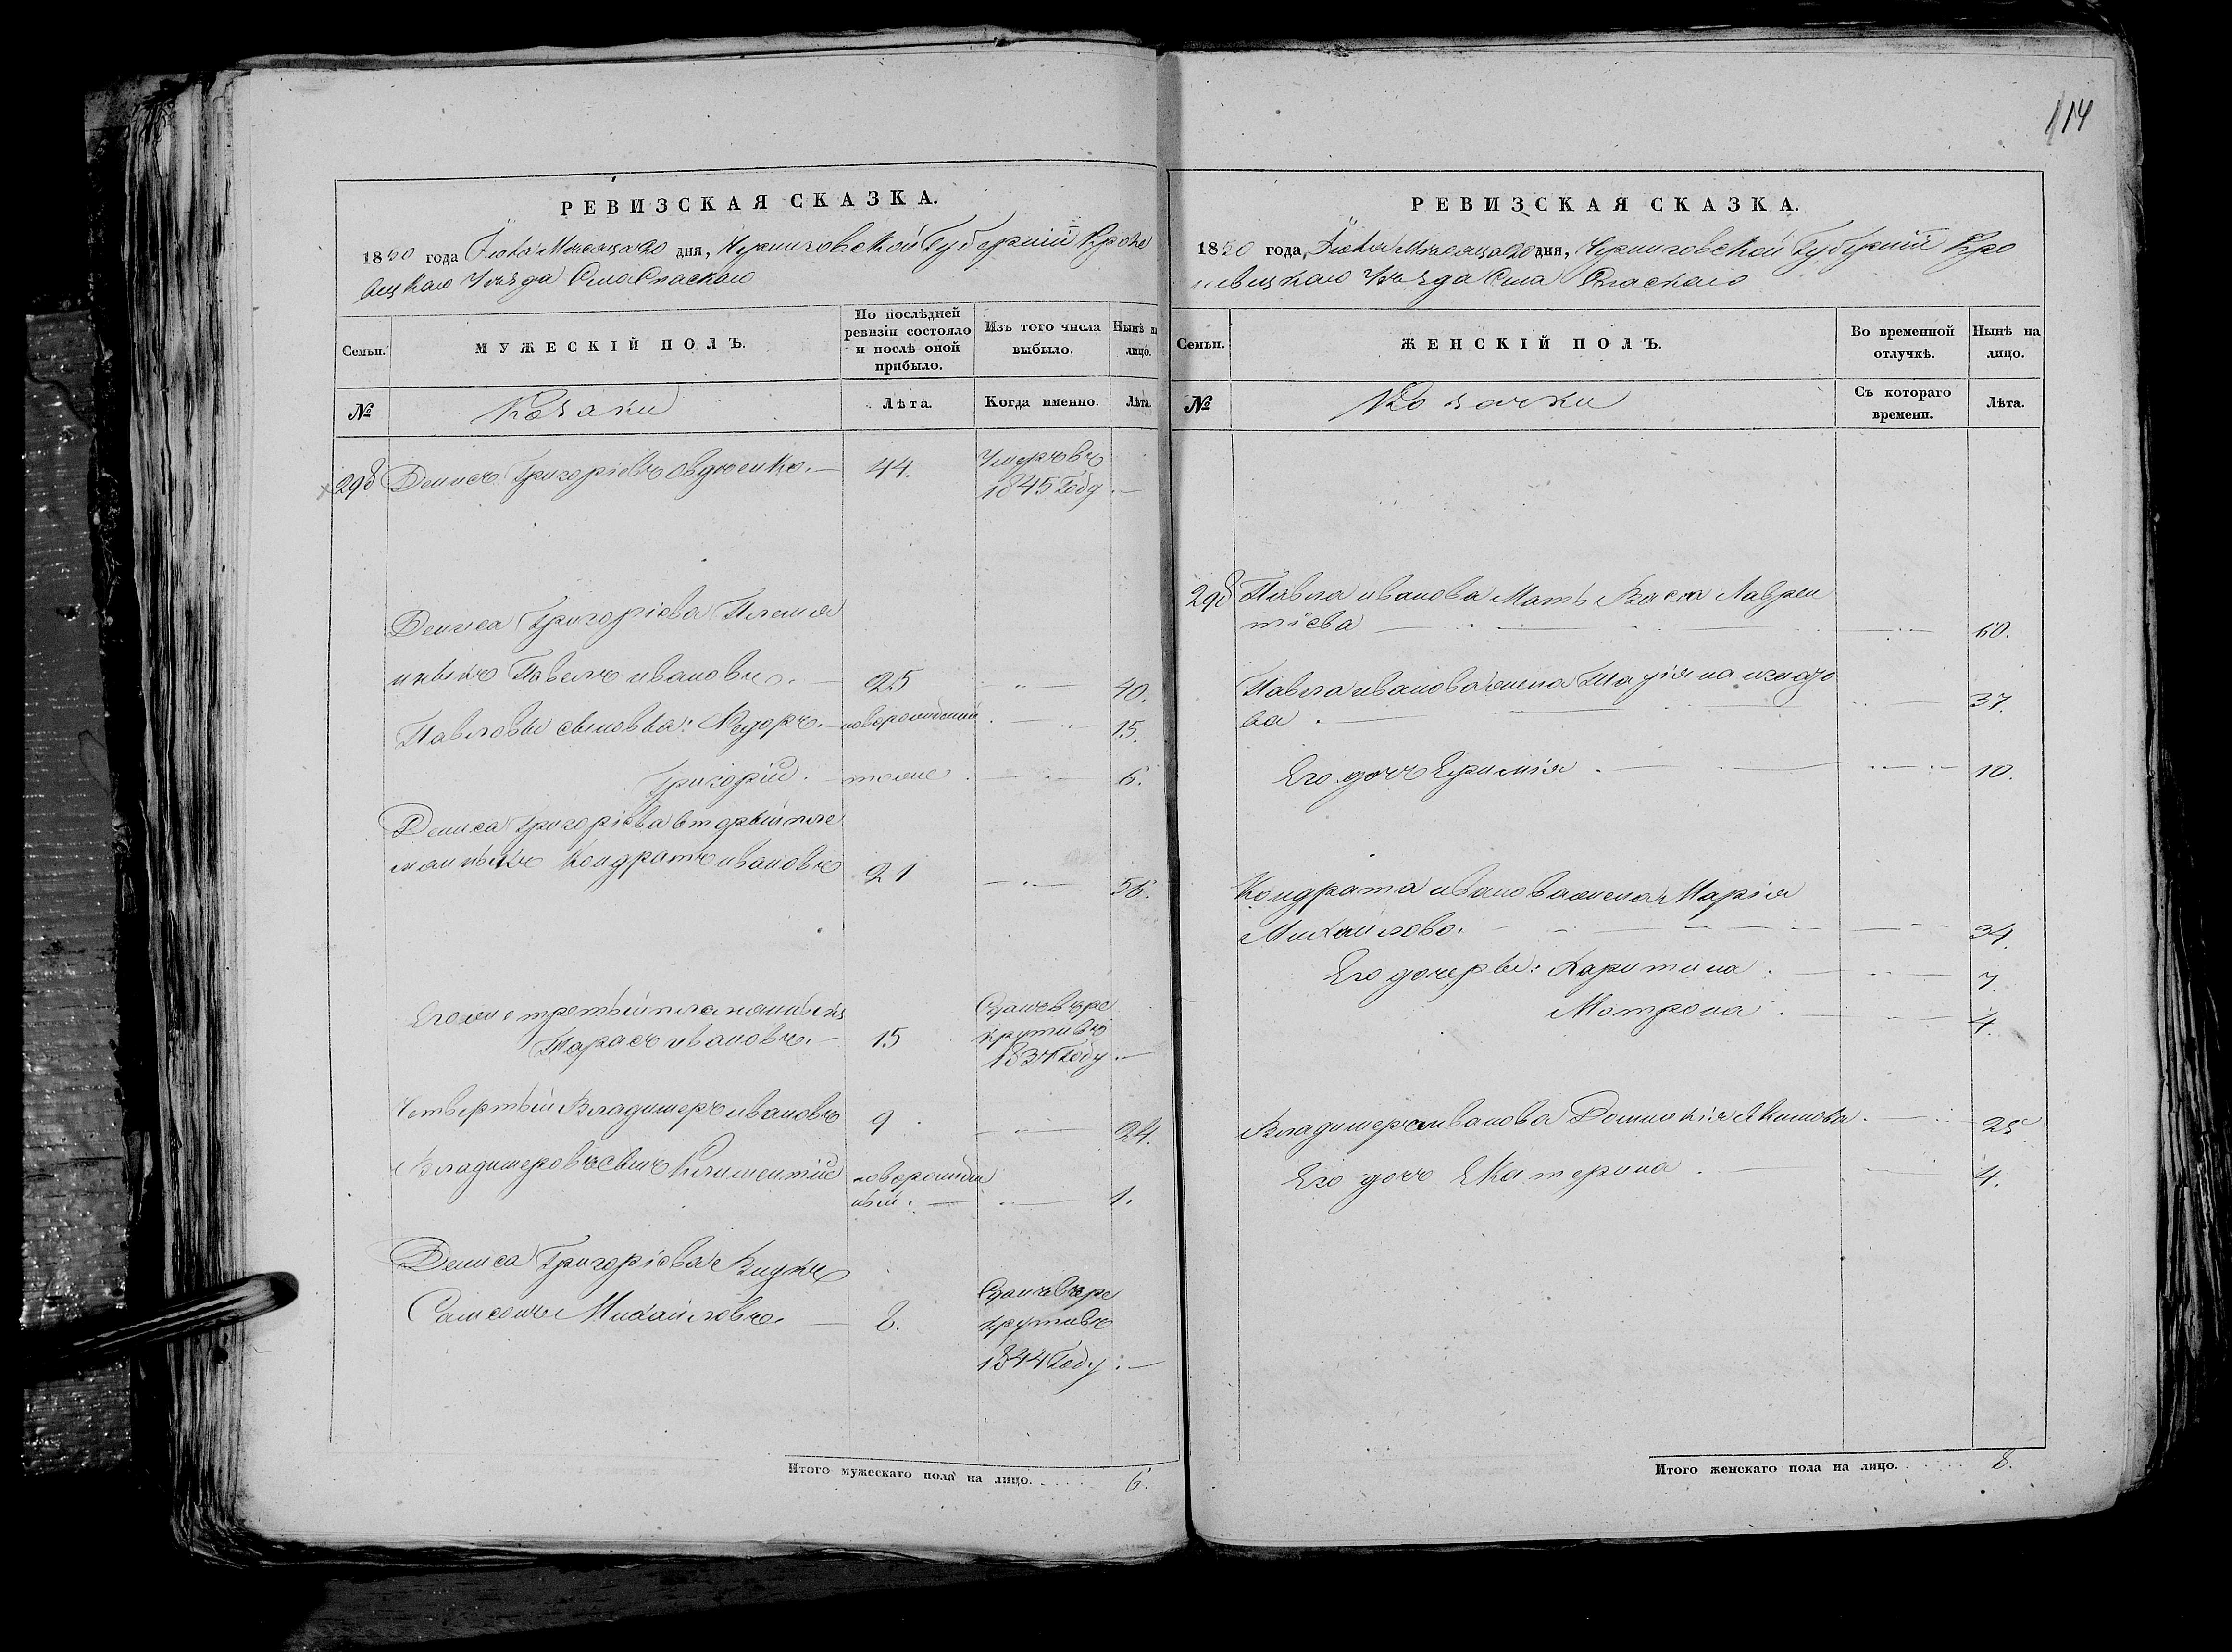 114
РЕВИЗСКАЯ СКАЗКА.
1850 года Июля Месяца 20 дня, Черниговской Губерніи Кроле
вецкаго Уезда Села Спаскаго
Семьи.
МУЖЕСКІЙ ПОЛЪ.
По послѣдней ревизіи состояло и послѣ оной прибыло.
Изъ того числа выбыло.
Нынѣ на лицо.
№
Козаки
Лѣта.
Когда именно.
Лѣта.
298 Денисъ Григоріевъ Овдіенко. 44. Умеръ въ
1845 Году.
Дениса Григоріева Племя
никъ Павелъ ивановъ. 25 40.
Павловы сыновья: Федоръ. новорожденный 15.
Григорій. тоже 6.
Дениса Григоріева вторый пле
манныкъ Кондратъ ивановъ 21 36.
Егоже третій племянныкъ Сданъ въ ре
Тарасъ ивановъ. 15 круты въ
1837 Году.
Четвертый Владимеръ ивановъ 9 24.
Владимеровъ сынъ Климентій новорожден
ный. 1.
Дениса Григоріева Внукъ
Самсонъ Михайловъ. 8. Сданъ въ ре
круты въ
1844 Году.
Итого мужескаго пола на лицо. 6.
РЕВИЗСКАЯ СКАЗКА.
1850 года, Июля Месяца 20 дня, Черниговской Губерніи Кро
левецкаго Уезда Села Спаскаго
Семьи.
ЖЕНСКІЙ ПОЛЪ.
Во временной отлучкѣ.
Нынѣ на лицо.
№
Козачки
Съ котораго времени.
Лѣта.
298 Павла иванова Мать Васса Лаврен
тіева 60.
Павла иванова жена
ва 37.
Его дочь 10.
Кондрата иванова жена Марія
Михайлова. 34.
Его дочери: Харитина. 7
Матрона. 4.
Владимера иванова Домникія Якимова. 25
Его дочь Екатерина. 4.
Итого женскаго пола на лицо. 8.